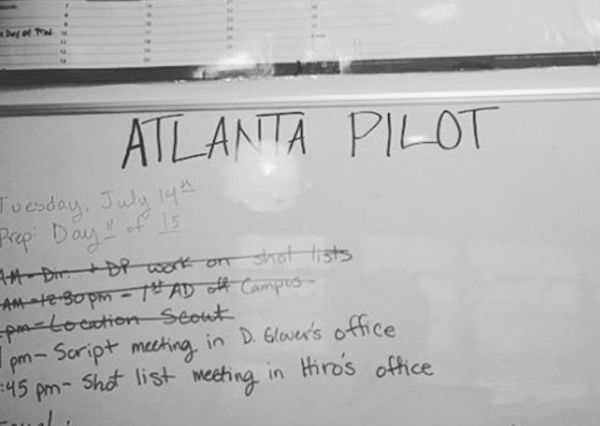 Day of Prod.
ATLANTA PILOT
Tuesday, July 14th
Prep: Day 11 of 15
AM - Dir. + DP work on shot lists
AM - 12:30pm - 1st AD off Campus
pm - Location Scout
pm - Script meeting in D. Glover's office
:45 pm - Shot list meeting in Hiro's office